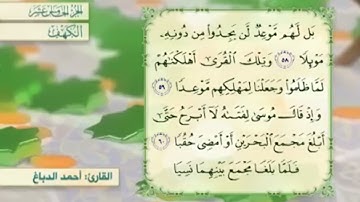 الجزء الخامس عشر
الكهف
بَل لَّهُم مَّوْعِدٌ لَّن يَجِدُوا۟ مِن دُونِهِۦ
مَوْئِلًا ٥٨ وَتِلْكَ ٱلْقُرَىٰٓ أَهْلَكْنَٰهُمْ
لَمَّا ظَلَمُوا۟ وَجَعَلْنَا لِمَهْلِكِهِم مَّوْعِدًا ٥٩
وَإِذْ قَالَ مُوسَىٰ لِفَتَىٰهُ لَآ أَبْرَحُ حَتَّىٰٓ
أَبْلُغَ مَجْمَعَ ٱلْبَحْرَيْنِ أَوْ أَمْضِىَ حُقُبًا ٦٠
فَلَمَّا بَلَغَا مَجْمَعَ بَيْنِهِمَا نَسِيَا
القارئ: أحمد الدباغ